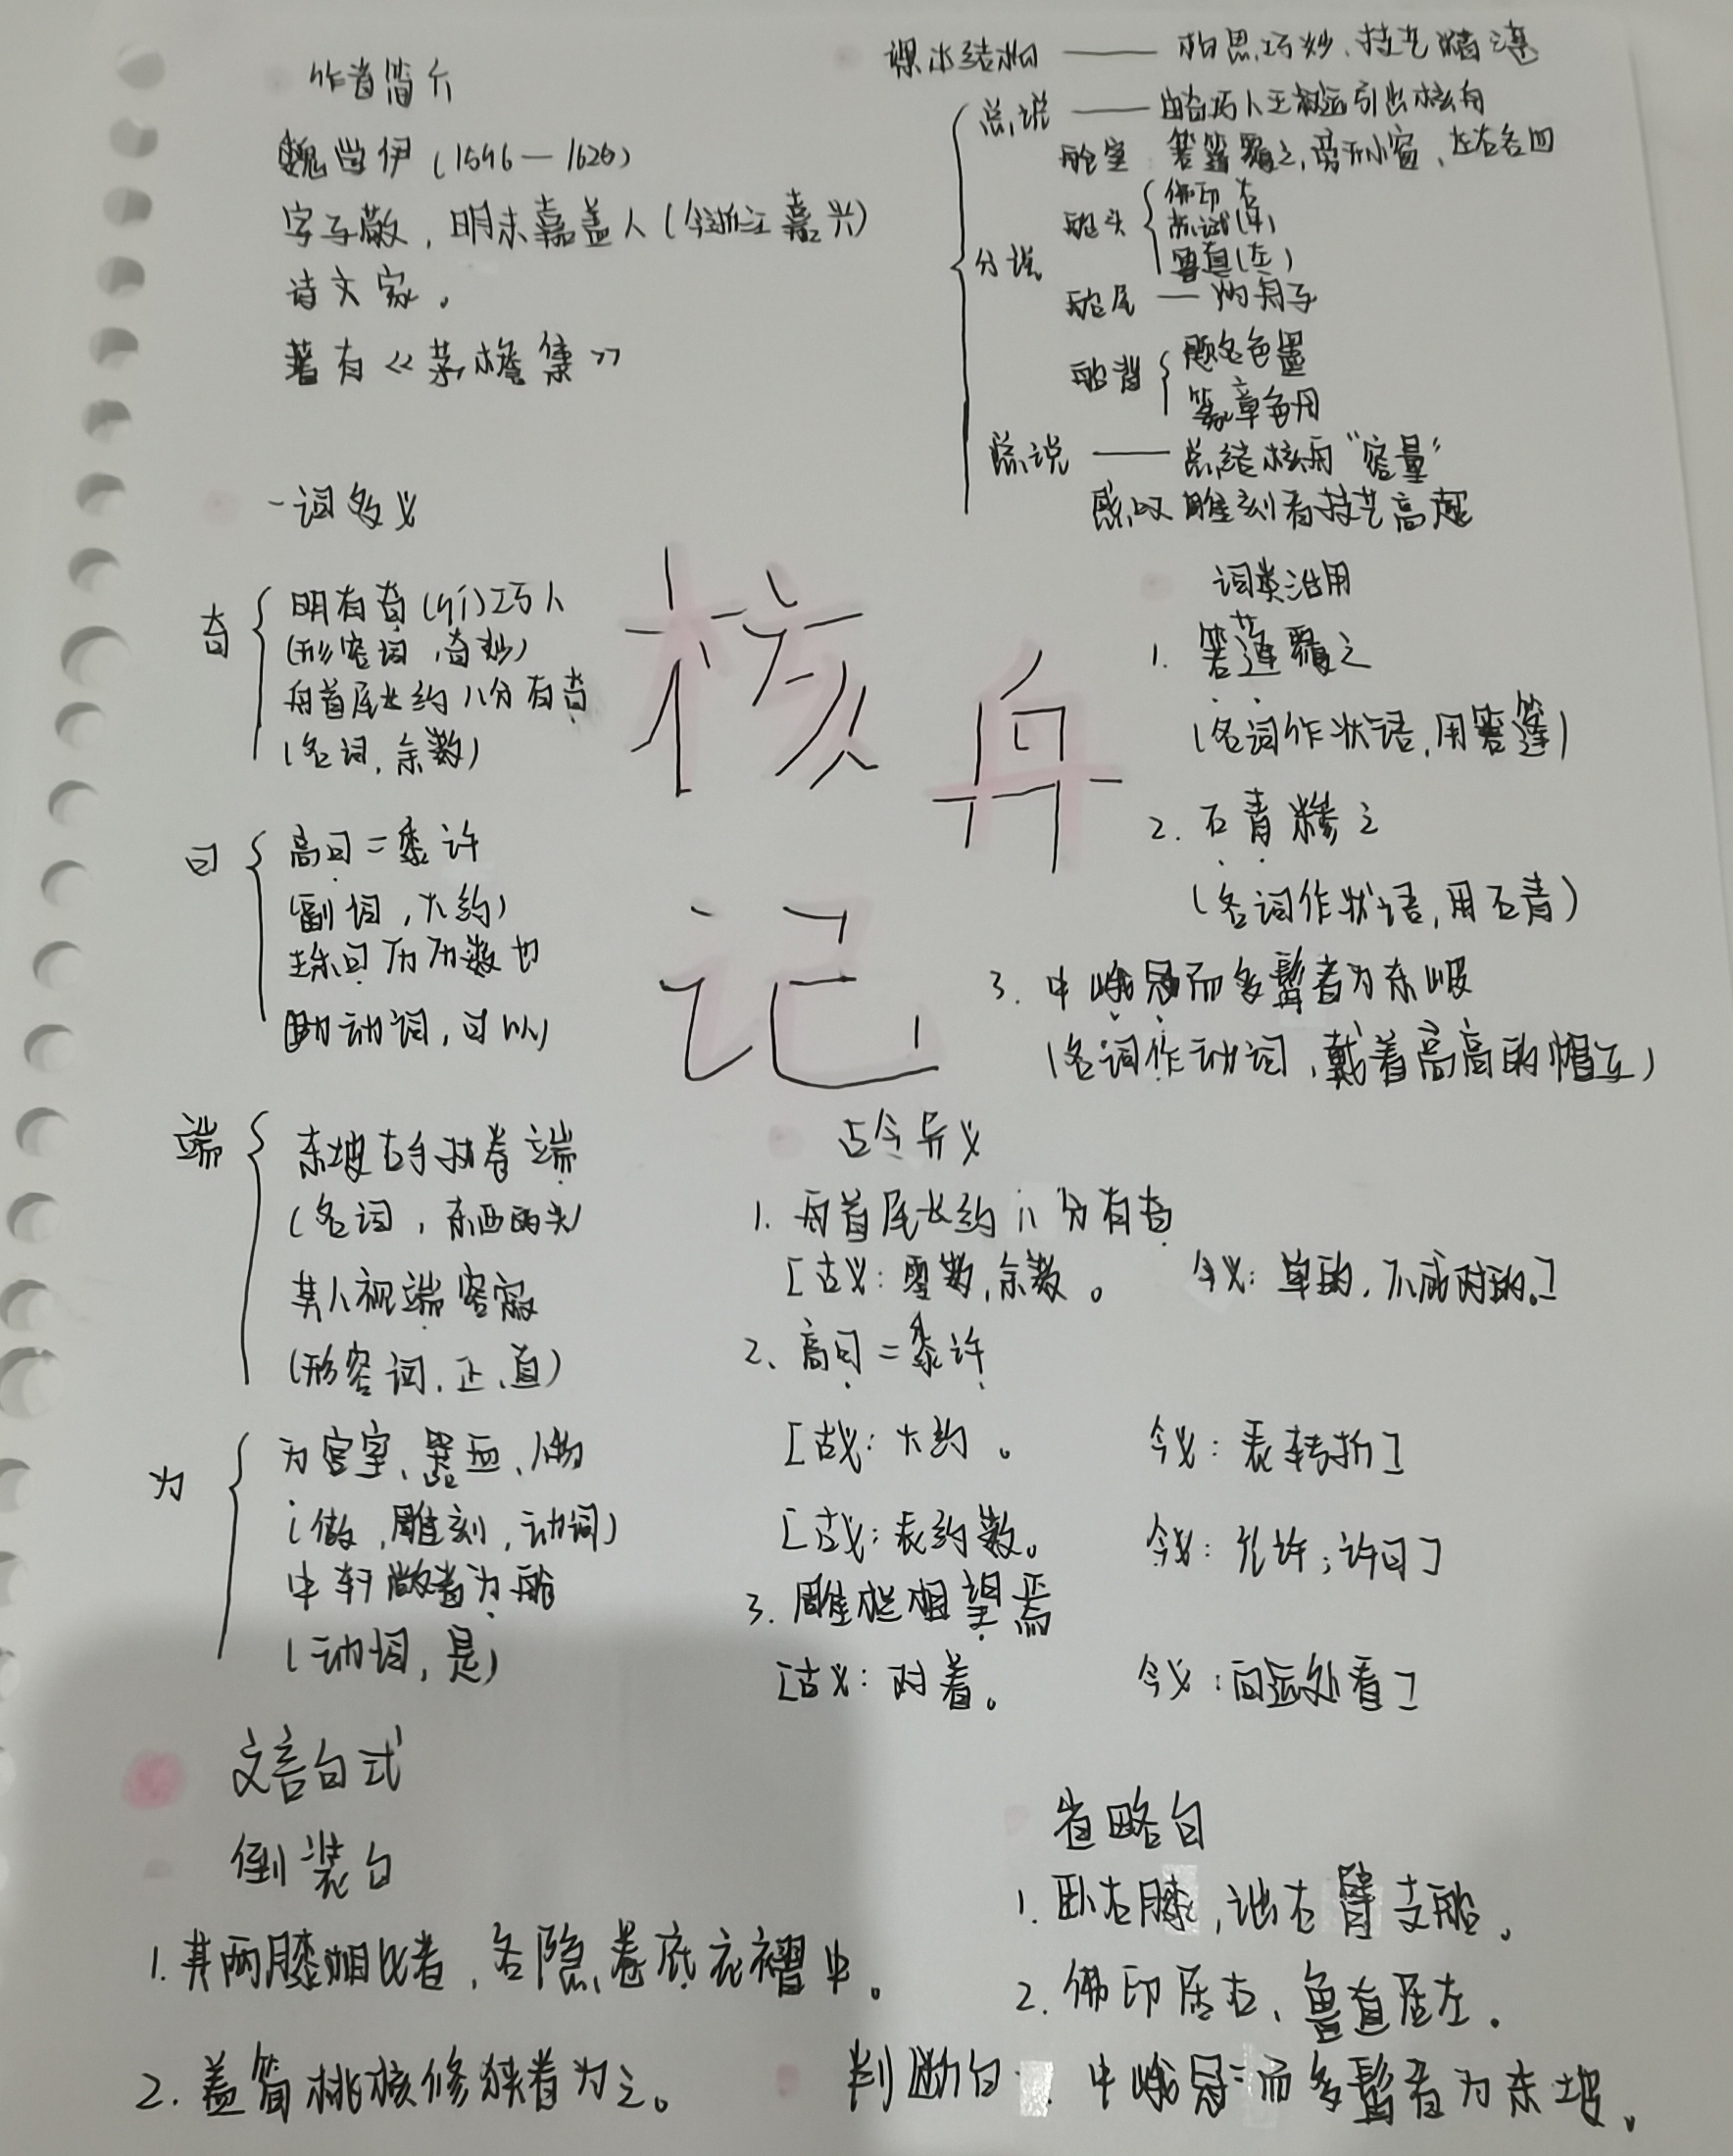 作者简介
魏学伊(1596—1625)
字子敬,明末嘉盖人(今浙江嘉兴)
诗文家。
著有《茅檐集》
课本结构——构思巧妙、技艺精湛
总说——由奇巧人王叔远引出核舟
分说
船室 箬篷覆之,旁开小窗,左右各四
船头
佛印右
苏轼(中)
鲁直(左)
船尾——灼舟子
船背
题名色墨
篆章色丹
总说——总结核舟“容量”
感叹雕刻者技艺高超
一词多义
奇
明有奇(qí)巧人
(形容词,奇妙)
舟首尾长约八分有奇
(名词,余数)
可
高可二黍许
(副词,大约)
珠可历历数也
助动词,可以)
端
东坡右手执卷端
(名词,东西的头)
其人视端容寂
(形容词,正,直)
为
为宫室、器皿、人物
(做,雕刻,动词)
中轩敞者为船
(动词,是)
核舟记
词类活用
1. 箬篷覆之
(名词作状语,用箬篷)
2. 石青糁之
(名词作状语,用石青)
3. 中峨冠而多髯者为东坡
(名词作动词,戴着高高的帽子)
古今异义
1. 舟首尾长约八分有奇
[古义:零数,余数。 今义:单的,不成对的。]
2、高可二黍许
[古义:大约。 今义:表转折]
[古义:表约数。 今义:允许;许可]
3. 雕栏相望焉
[古义:对着。 今义:向远处看]
文言句式
倒装句
1. 其两膝相比者,各隐卷底衣褶中。
2. 盖简桃核修狭者为之。
省略句
1. 卧右膝,诎右臂支船。
2. 佛印居右,鲁直居左.
判断句 中峨冠而多髯者为东坡。